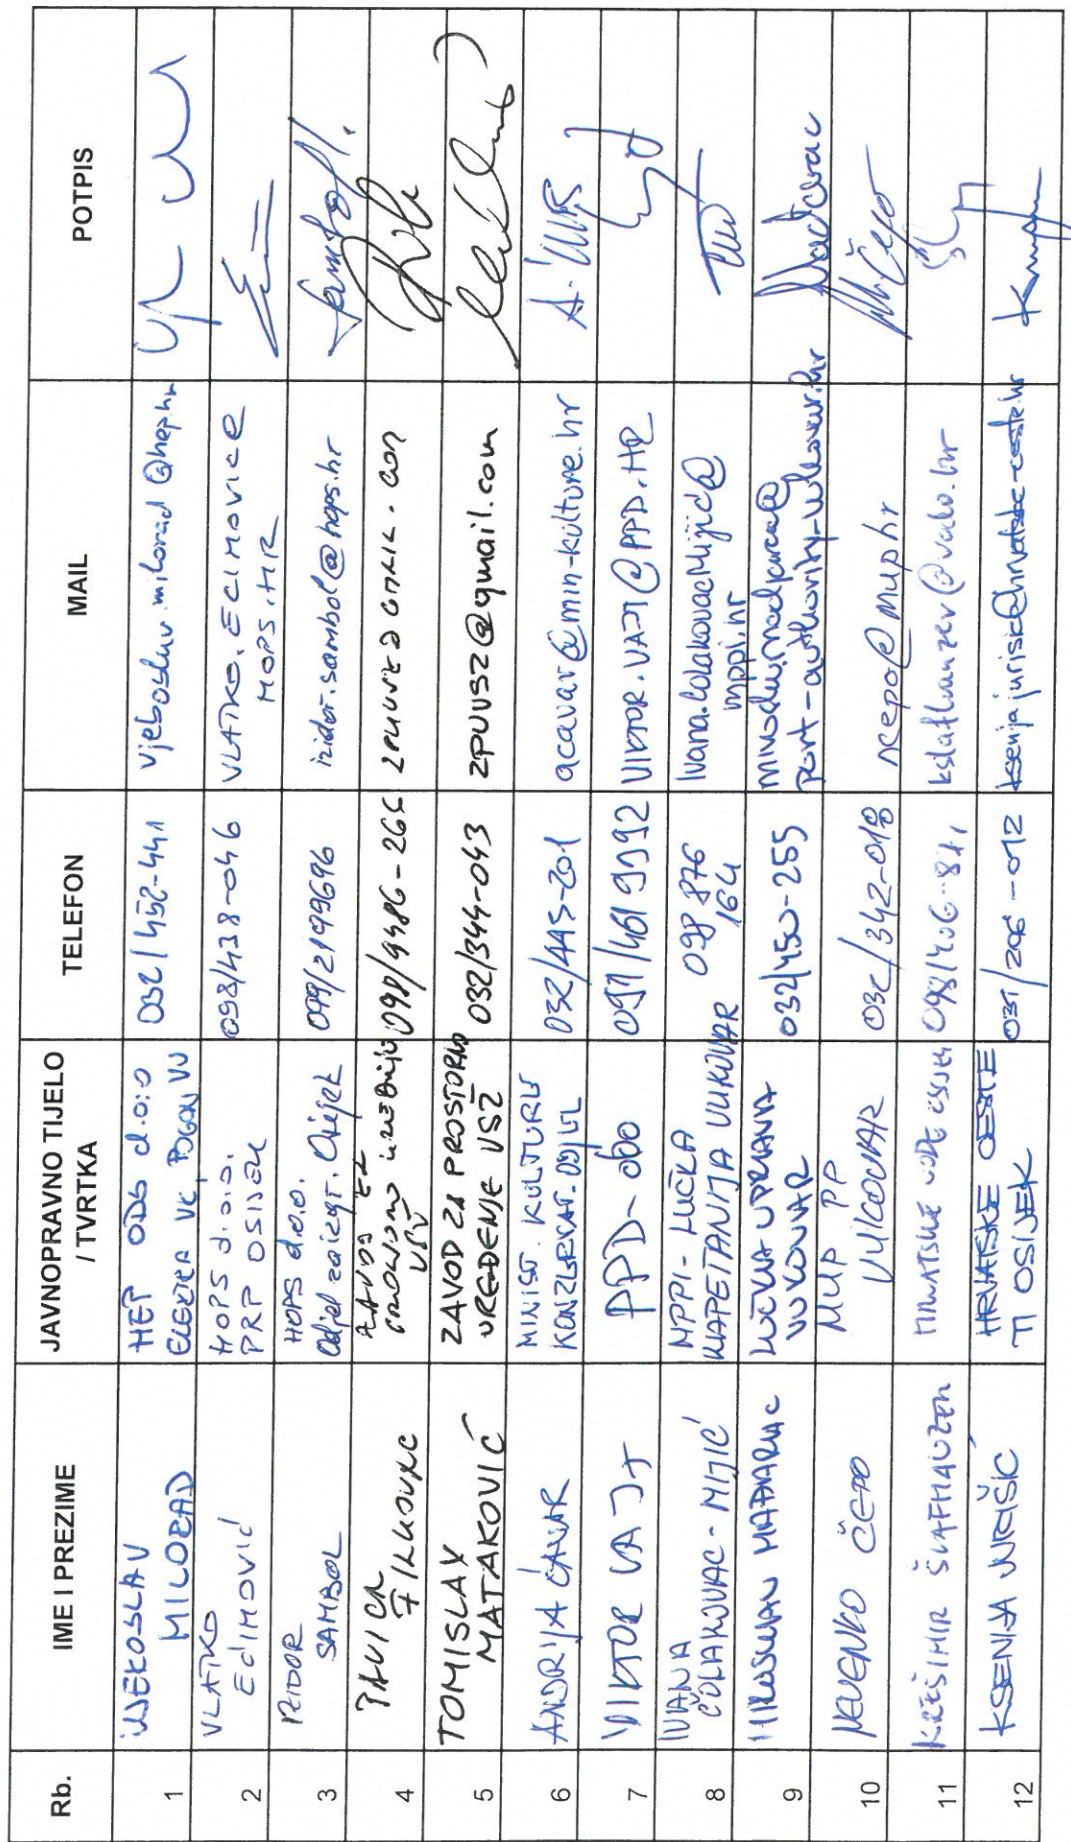 Rb. IME I PREZIME JAVNOPRAVNO TIJELO / TVRTKA TELEFON MAIL POTPIS
1 VJEKOSLAV MILORAD
HEP ODS d.o.o
ELEKTRA VK POGON VU
032/452-441
vjekoslav.milorad@hep.hr
2 VLATKO EĆIMOVIĆ
HOPS d.o.o.
PRP OSIJEK
098/438-046
VLATKO.ECIMOVIC@
HOPS.HR
3 IZIDOR SAMBOL
HOPS d.o.o.
Odjel za izgr. Osijek
099/2199696
izidor.sambol@hops.hr
4 PAVICA FILKOVIĆ
098/9486-265
5 TOMISLAV MATAKOVIĆ
ZAVOD ZA PROSTORNO
UREĐENJE VSŽ
032/344-043
zpuvsz@gmail.com
6 ANDRIJA ĆAVAR
MINIST. KULTURE
KONZERVAT. ODJEL
032/445-201
acavar@min-kulture.hr
7 VIKTOR VAJT
PPD-doo
091/4619992
VIKTOR.VAJT@PPD.HR
8 IVANA ČOLAKOVAC-MIJIĆ
MPPI-LUČKA
KAPETANIJA VUKOVAR
098 876
164
Ivana.ColakovacMijic@
mppi.hr
9 MIROSLAV MAĐARAC
LUČKA UPRAVA
VUKOVAR
032/450-255
miroslav.madjarac@
port-authority-vukovar.hr
10 NEVENKO ČEPO
MUP PP
VUKOVAR
032/342-018
ncepo@mup.hr
11 KREŠIMIR ŠLAFHAUZEN
HRVATSKE VODE OSIJEK
12 KSENIJA JURIŠIĆ
HRVATSKE CESTE
TI OSIJEK
031/206-012
ksenija.jurisic@hrvatske-ceste.hr